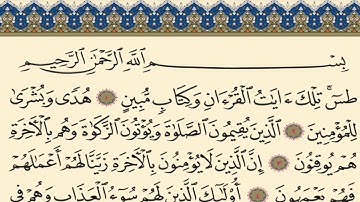 بِسْمِ ٱللَّهِ ٱلرَّحْمَٰنِ ٱلرَّحِيمِ
طسٓ ۚ تِلْكَ ءَايَٰتُ ٱلْقُرْءَانِ وَكِتَابٍ مُّبِينٍ ١ هُدًى وَبُشْرَىٰ
لِلْمُؤْمِنِينَ ٢ ٱلَّذِينَ يُقِيمُونَ ٱلصَّلَوٰةَ وَيُؤْتُونَ ٱلزَّكَوٰةَ وَهُم بِٱلْءَاخِرَةِ
هُمْ يُوقِنُونَ ٣ إِنَّ ٱلَّذِينَ لَا يُؤْمِنُونَ بِٱلْءَاخِرَةِ زَيَّنَّا لَهُمْ أَعْمَٰلَهُمْ
فَهُمْ يَعْمَهُونَ ٤ أُو۟لَٰٓئِكَ ٱلَّذِينَ لَهُمْ سُوٓءُ ٱلْعَذَابِ وَهُمْ فِى